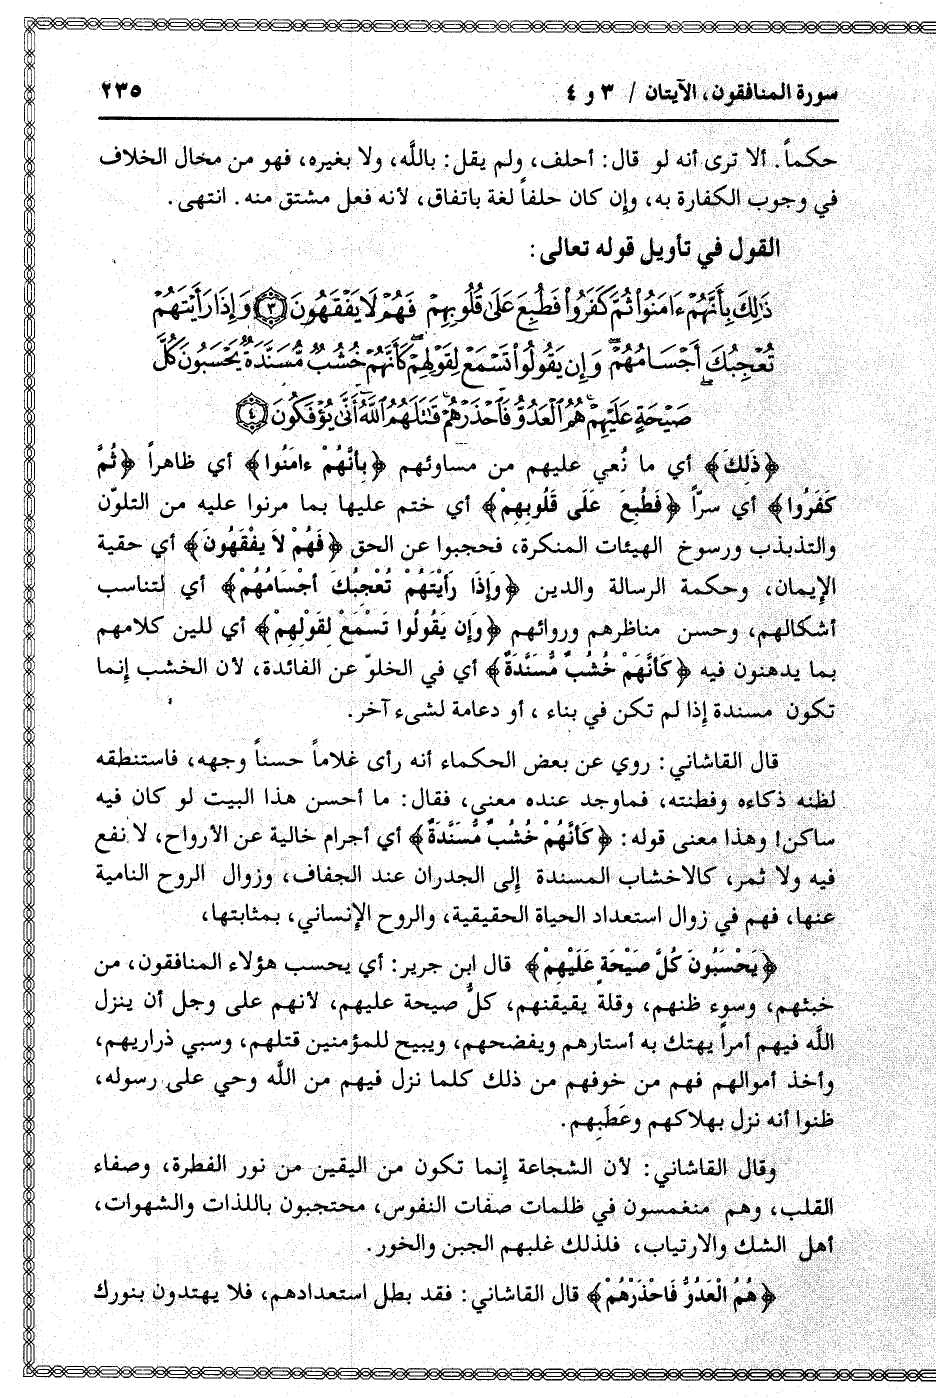 سورة المنافقون، الآيتان / ٣ و ٤
٢٣٥
حكماً. ألا ترى أنه لو قال: أحلف، ولم يقل: بالله، ولا بغيره، فهو من مخال الخلاف
في وجوب الكفارة به، وإن كان حلفاً لغة باتفاق، لأنه فعل مشتق منه. انتهى.
القول في تأويل قوله تعالى:
ذَٰلِكَ بِأَنَّهُمْ ءَامَنُوا۟ ثُمَّ كَفَرُوا۟ فَطُبِعَ عَلَىٰ قُلُوبِهِمْ فَهُمْ لَا يَفْقَهُونَ ﴿٣﴾ وَإِذَا رَأَيْتَهُمْ
تُعْجِبُكَ أَجْسَامُهُمْ ۖ وَإِن يَقُولُوا۟ تَسْمَعْ لِقَوْلِهِمْ ۖ كَأَنَّهُمْ خُشُبٌ مُّسَنَّدَةٌ ۖ يَحْسَبُونَ كُلَّ
صَيْحَةٍ عَلَيْهِمْ ۚ هُمُ الْعَدُوُّ فَاحْذَرْهُمْ ۚ قَاتَلَهُمُ اللَّهُ ۖ أَنَّىٰ يُؤْفَكُونَ ﴿٤﴾
﴿ذَلِكَ﴾ أي ما نُعي عليهم من مساوئهم ﴿بِأَنَّهُمْ ءامَنُوا﴾ أي ظاهراً ﴿ثُمَّ
كَفَرُوا﴾ أي سرّاً ﴿فَطُبِعَ عَلَى قُلُوبِهِمْ﴾ أي ختم عليها بما مرنوا عليه من التلوّن
والتذبذب ورسوخ الهيئات المنكرة، فحجبوا عن الحق ﴿فَهُمْ لاَ يفْقَهُونَ﴾ أي حقية
الإيمان، وحكمة الرسالة والدين ﴿وَإذَا رَأيْتَهُمْ تُعْجِبُكَ أجْسَامُهُمْ﴾ أي لتناسب
أشكالهم، وحسن مناظرهم وروائهم ﴿وَإن يَقُولُوا تَسْمَعْ لِقَوْلِهِمْ﴾ أي للين كلامهم
بما يدهنون فيه ﴿كَأنَّهَمْ خُشُبٌ مُّسَنَّدَةٌ﴾ أي في الخلوّ عن الفائدة، لأن الخشب إنما
تكون مسندة إذا لم تكن في بناء ، أو دعامة لشىء آخر.
قال القاشاني: روي عن بعض الحكماء أنه رأى غلاماً حسناً وجهه، فاستنطقه
لظنه ذكاءه وفطنته، فماوجد عنده معنى، فقال: ما أحسن هذا البيت لو كان فيه
ساكن! وهذا معنى قوله: ﴿كَأنَّهُمْ خُشُبٌ مُّسَنَّدَةٌ﴾ أي أجرام خالية عن الأرواح، لا نفع
فيه ولا ثمر، كالاخشاب المسندة إلى الجدران عند الجفاف، وزوال الروح النامية
عنها، فهم في زوال استعداد الحياة الحقيقية، والروح الإنساني، بمثابتها،
﴿يَحْسَبُونَ كُلَّ صَيْحَةٍ عَلَيْهِمْ﴾ قال ابن جرير: أي يحسب هؤلاء المنافقون، من
خبثهم، وسوء ظنهم، وقلة يقيقنهم، كلُّ صيحة عليهم، لأنهم على وجل أن ينزل
الله فيهم أمراً يهتك به أستارهم ويفضحهم، ويبيح للمؤمنين قتلهم، وسبي ذراريهم،
وأخذ أموالهم فهم من خوفهم من ذلك كلما نزل فيهم من الله وحي على رسوله،
ظنوا أنه نزل بهلاكهم وعَطَبِهم.
وقال القاشاني: لأن الشجاعة إنما تكون من اليقين من نور الفطرة، وصفاء
القلب، وهم منغمسون في ظلمات صفات النفوس، محتجبون باللذات والشهوات،
أهل الشك والارتياب، فلذلك غلبهم الجبن والخور.
﴿هُمُ الْعَدُوُّ فَاحْذَرْهُمْ﴾ قال القاشاني: فقد بطل استعدادهم، فلا يهتدون بنورك